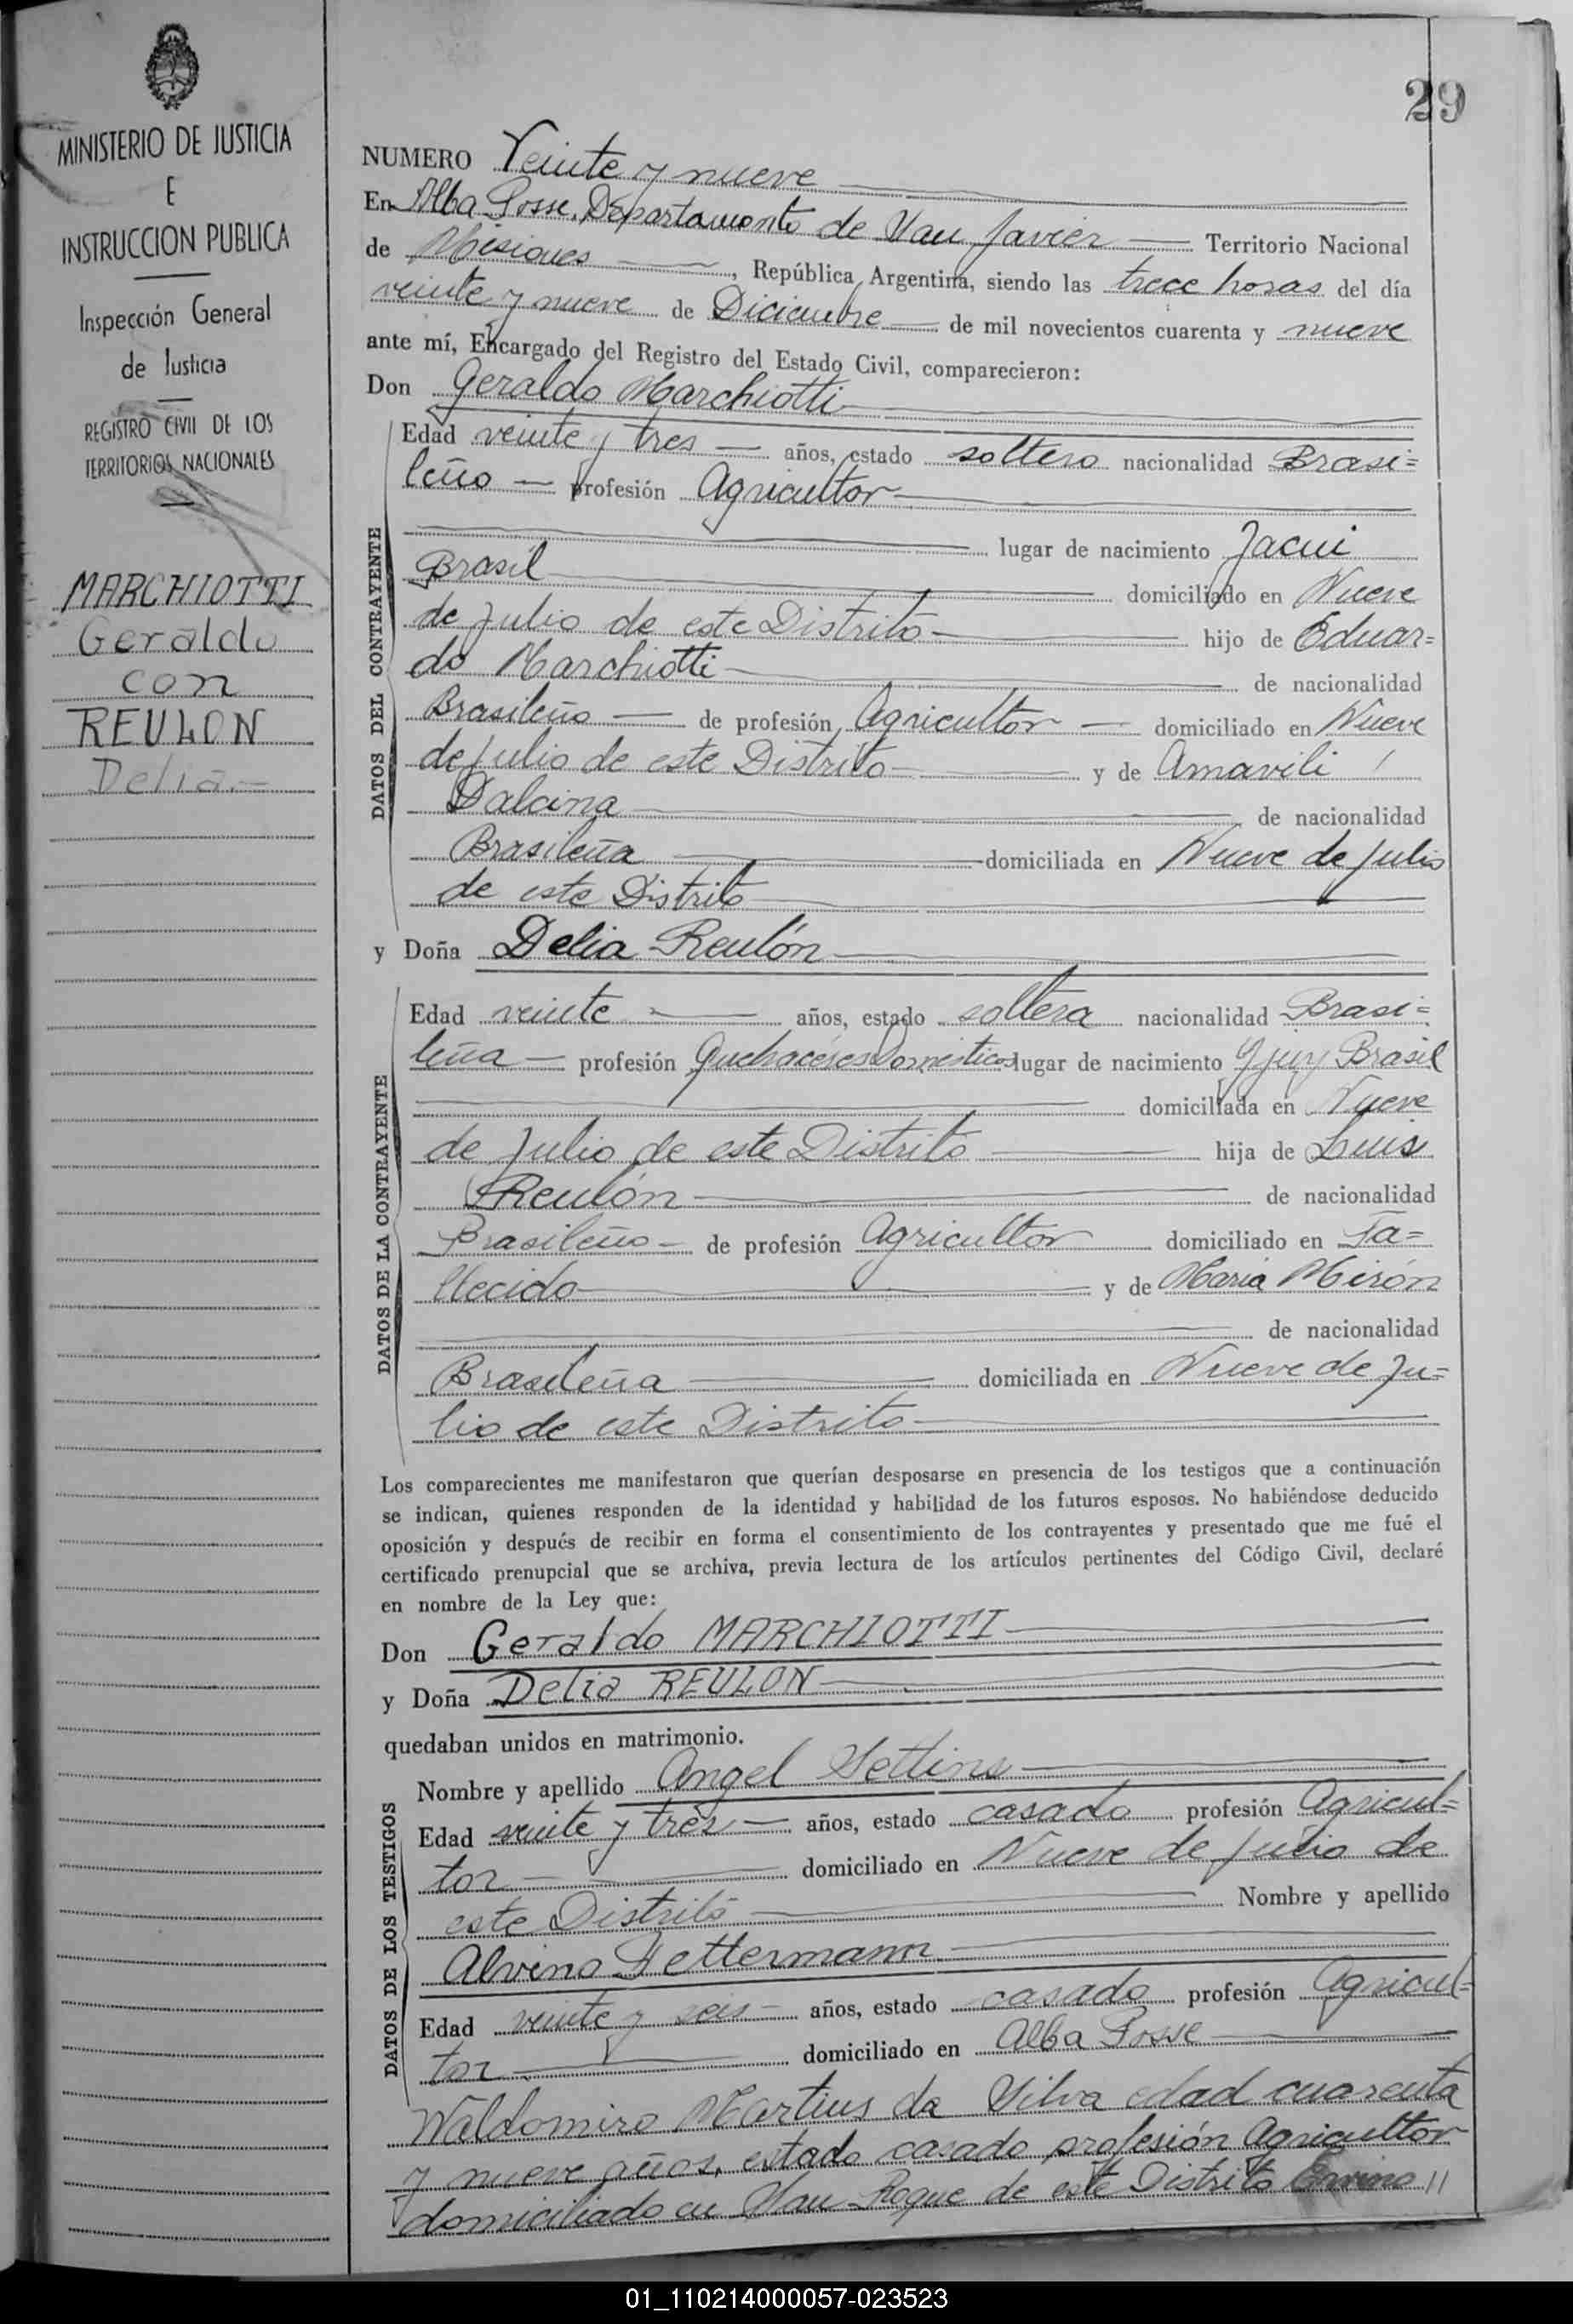 29
MINISTERIO DE JUSTICIA
E
INSTRUCCION PUBLICA
Inspección General
de Justicia
REGISTRO CIVIL DE LOS
TERRITORIOS NACIONALES
MARCHIOTTI
Geraldo
con
REULON
Delia.-
NUMERO Veinte y nueve
En Alba Posse, Departamento de San Javier — Territorio Nacional
de Misiones —, República Argentina, siendo las trece horas del día
veinte y nueve de Diciembre — de mil novecientos cuarenta y nueve
ante mí, Encargado del Registro del Estado Civil, comparecieron:
Don Geraldo Marchiotti
DATOS DEL CONTRAYENTE
Edad veinte y tres — años, estado soltero nacionalidad Brasi=
leño — profesión Agricultor
lugar de nacimiento Jacui
Brasil domiciliado en Nueve
de Julio de este Distrito — hijo de Eduar=
do Marchiotti — de nacionalidad
Brasileño — de profesión Agricultor — domiciliado en Nueve
de Julio de este Distrito — y de Amavili
Dalcina — de nacionalidad
Brasileña — domiciliada en Nueve de Julio
de este Distrito
y Doña Delia Reulón
DATOS DE LA CONTRAYENTE
Edad veinte — años, estado soltera nacionalidad Brasi=
leña — profesión Quehaceres Domésticos lugar de nacimiento Yjuy Brasil
domiciliada en Nueve
de Julio de este Distrito — hija de Luis
Reulón — de nacionalidad
Brasileño — de profesión Agricultor domiciliado en Fa=
llecido — y de Maria Mirón
de nacionalidad
Brasileña — domiciliada en Nueve de Ju=
lio de este Distrito
Los comparecientes me manifestaron que querían desposarse en presencia de los testigos que a continuación
se indican, quienes responden de la identidad y habilidad de los futuros esposos. No habiéndose deducido
oposición y después de recibir en forma el consentimiento de los contrayentes y presentado que me fué el
certificado prenupcial que se archiva, previa lectura de los artículos pertinentes del Código Civil, declaré
en nombre de la Ley que:
Don Geraldo MARCHIOTTI
y Doña Delia REULON
quedaban unidos en matrimonio.
DATOS DE LOS TESTIGOS
Nombre y apellido Angel
Edad veinte y tres — años, estado casado profesión Agricul=
tor — domiciliado en Nueve de Julio de
este Distrito — Nombre y apellido
Alvino Fettermann
Edad veinte y seis — años, estado casado profesión Agricul=
tor — domiciliado en Alba Posse
Waldomiro Martins da Silva edad cuarenta
y nueve años, estado casado profesión Agricultor
domiciliado en San Roque de este Distrito //
01_110214000057-023523